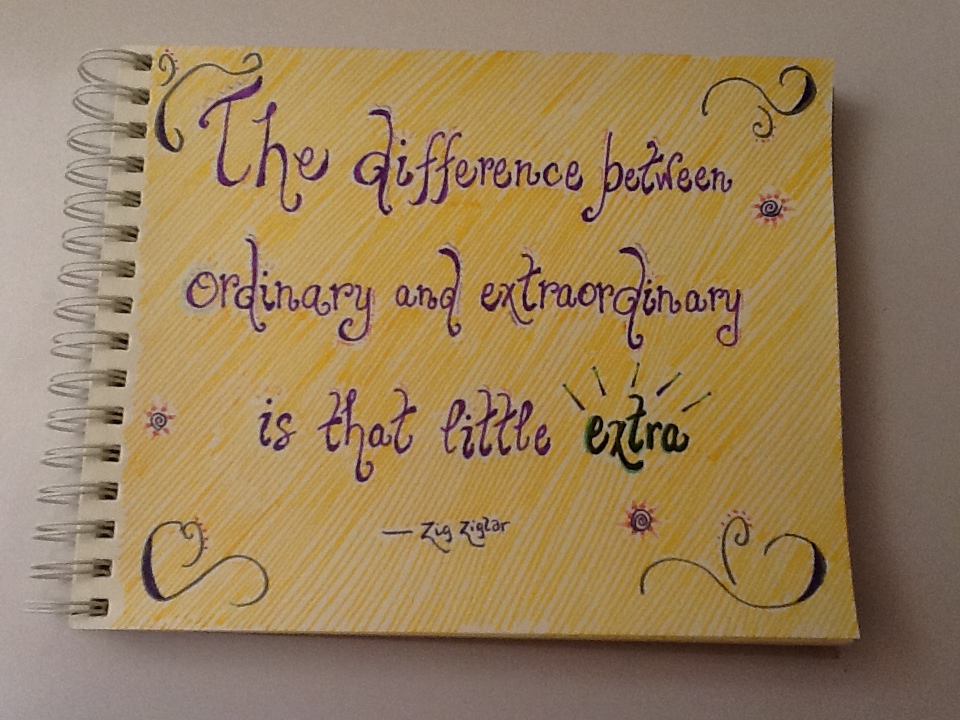 The difference between
ordinary and extraordinary
is that little extra
— Zig Ziglar